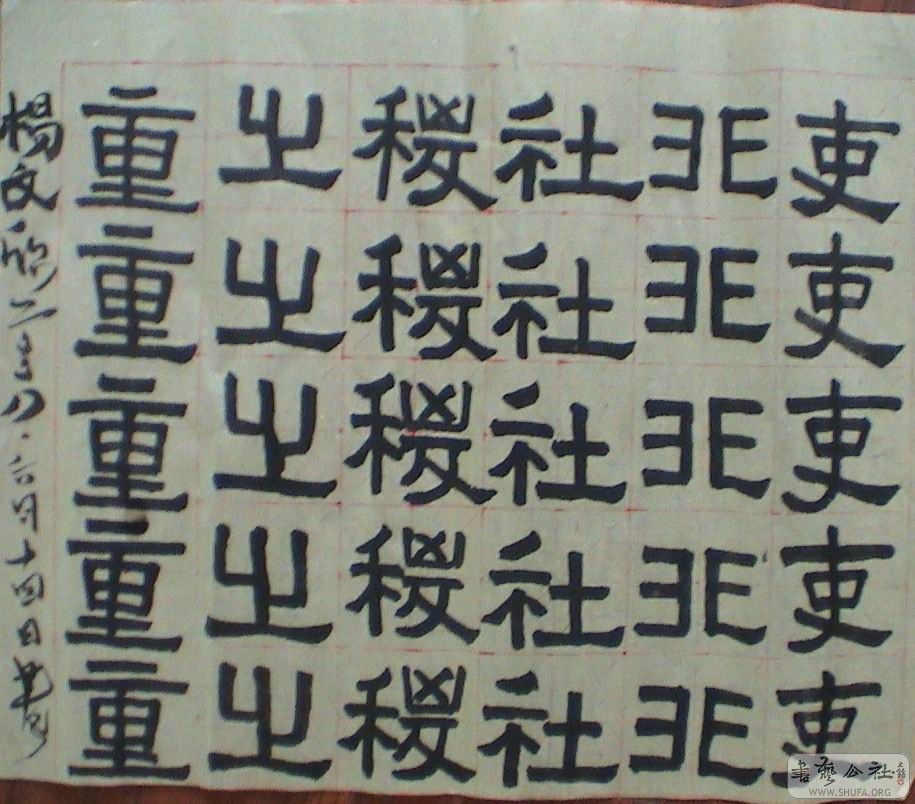 吏吏吏吏吏
非非非非非
社社社社社
稷稷稷稷稷
之之之之之
重重重重重
楊文二〇〇八.六月十四日書
書藝公社
WWW.SHUFA.ORG